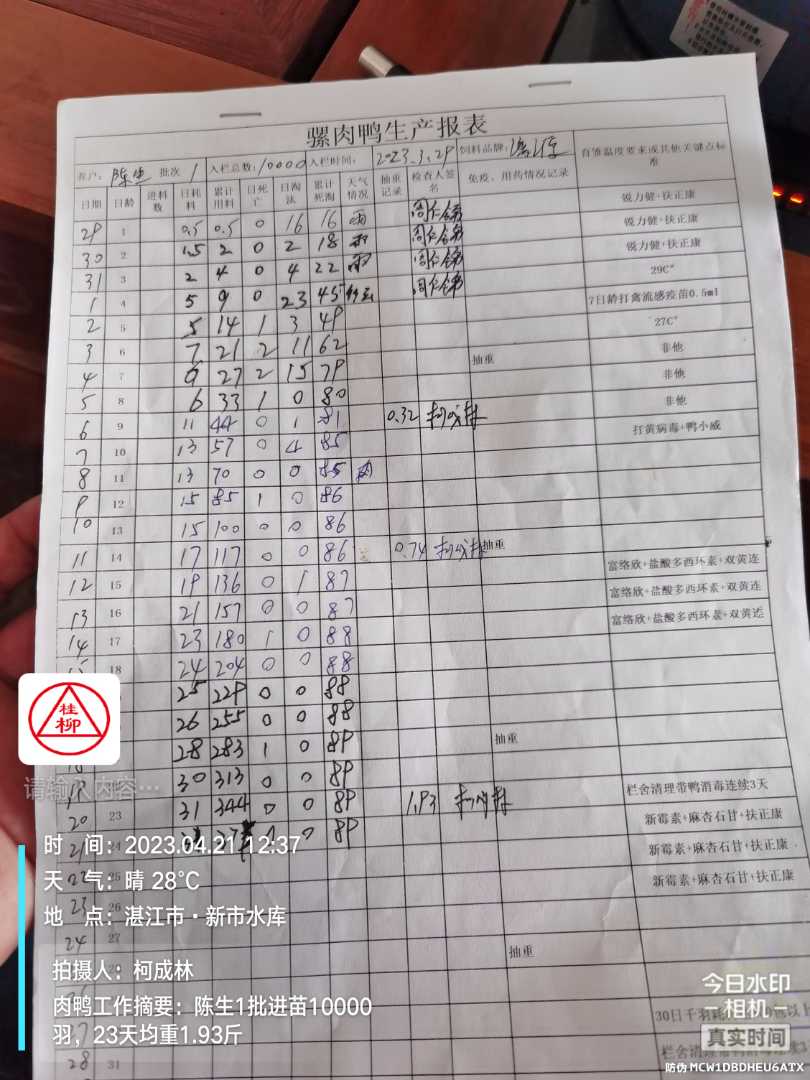 骡肉鸭生产报表
客户: 陈生 批次 1 入栏总数: 10000 入栏时间: 2023.3.29 饲料品牌:
育雏温度要求或其他关键点标准
日期 日龄 进料数 日耗料 累计用料 日死亡 日淘汰 累计死淘 天气情况 抽重记录 检查人签名 免疫、用药情况记录
29 1 0.5 0.5 0 16 16 雨 锐力健+扶正康
30 2 1.5 2 0 2 18 雨 锐力健+扶正康
31 3 2 4 0 4 22 雨 锐力健+扶正康
1 4 5 9 0 23 45 29C°
2 5 5 14 1 3 49 7日龄打禽流感疫苗0.5ml
3 6 7 21 2 11 62 27C°
4 7 9 27 2 15 79 抽重 非他
5 8 6 33 1 0 80 非他
6 9 11 44 0 1 81 0.32 非他
7 10 13 57 0 4 85 打黄病毒+鸭小威
8 11 13 70 0 0 85 雨
9 12 15 85 1 0 86
10 13 15 100 0 0 86
11 14 17 117 0 0 86 0.74 抽重
12 15 19 136 0 1 87 富络欣+盐酸多西环素+双黄连
13 16 21 157 0 0 87 富络欣+盐酸多西环素+双黄连
14 17 23 180 1 0 88 富络欣+盐酸多西环素+双黄连
15 18 24 204 0 0 88
25 229 0 0 88
26 255 0 0 88
28 283 1 0 89 抽重
30 313 0 0 89
19 31 344 0 0 89 1.93 栏舍清理带鸭消毒连续3天
20 23 0 0 89 新霉素+麻杏石甘+扶正康
21 24 新霉素+麻杏石甘+扶正康
22 25 新霉素+麻杏石甘+扶正康
23 26
24 27 抽重
30日千羽耗
27
28 31 栏舍清理带鸭消毒连续3
桂柳
请输入内容…
时 间：2023.04.21 12:37
天 气：晴 28℃
地 点：湛江市·新市水库
拍摄人：柯成林
肉鸭工作摘要：陈生1批进苗10000
羽，23天均重1.93斤
今日水印
相机
真实时间
防伪 MCW1DBDHEU6ATX